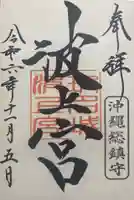 奉拝
沖縄総鎮守
波上宮
令和六年十二月五日